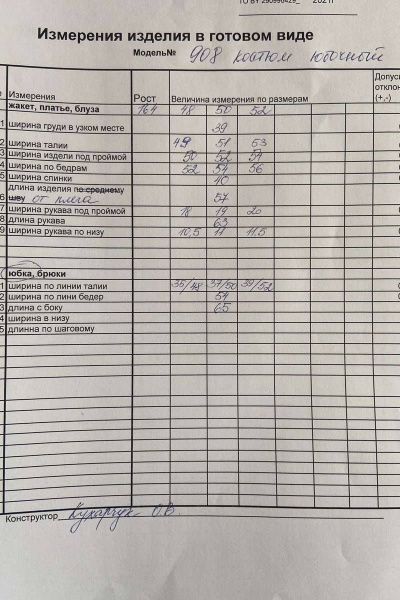 ТО BY 290990429_ 2021г
Измерения изделия в готовом виде
Модель№ 908 костюм юбочный
Измерения Рост Величина измерения по размерам Допуск отклон (+,-)
жакет, платье, блуза 164 48 50 52
1 ширина груди в узком месте 39
2 ширина талии 49 51 53
3 ширина издели под проймой 50 52 54
4 ширина по бедрам 52 54 56
5 ширина спинки 40
длина изделия по среднему
6 шву от плеча 57
7 ширина рукава под проймой 18 19 20
8 длина рукава 63
9 ширина рукава по низу 10,5 11 11.5
юбка, брюки
1 ширина по линии талии 35/48 37/50 39/52
2 ширина по лини бедер 54
3 длина с боку 65
4 ширина в низу
5 длинна по шаговому
Конструктор Кухарчук О.В